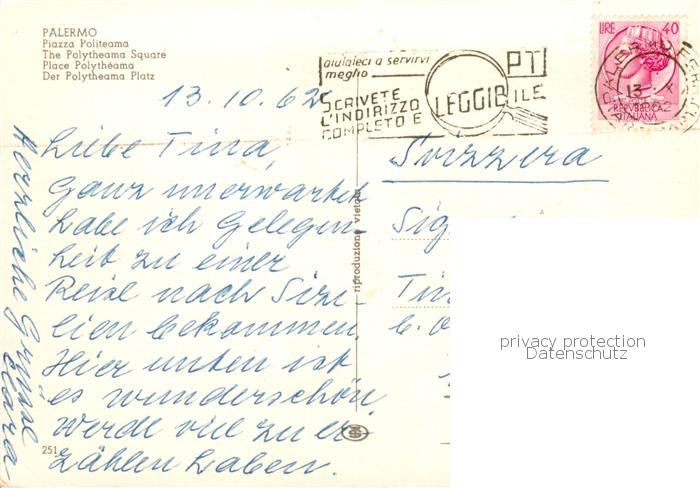 PALERMO
Piazza Politeama
The Polytheama Square
Place Polythéama
Der Polytheama Platz
aiutateci a servirvi
meglio
PT
SCRIVETE
L'INDIRIZZO
COMPLETO E LEGGIBILE
LIRE 40
REPVBBLICA
ITALIANA
13.10.62
Liebe Tina,
Ganz unerwartet
habe ich Gelegen-
heit zu einer
Reise nach Sizi-
lien bekommen.
Hier unten ist
es wunderschön,
werde viel zu er-
zählen haben.
Herzliche Grüsse
Clara
251
riproduzione vietata
Svizzera
Sig
Tin
privacy protection
Datenschutz